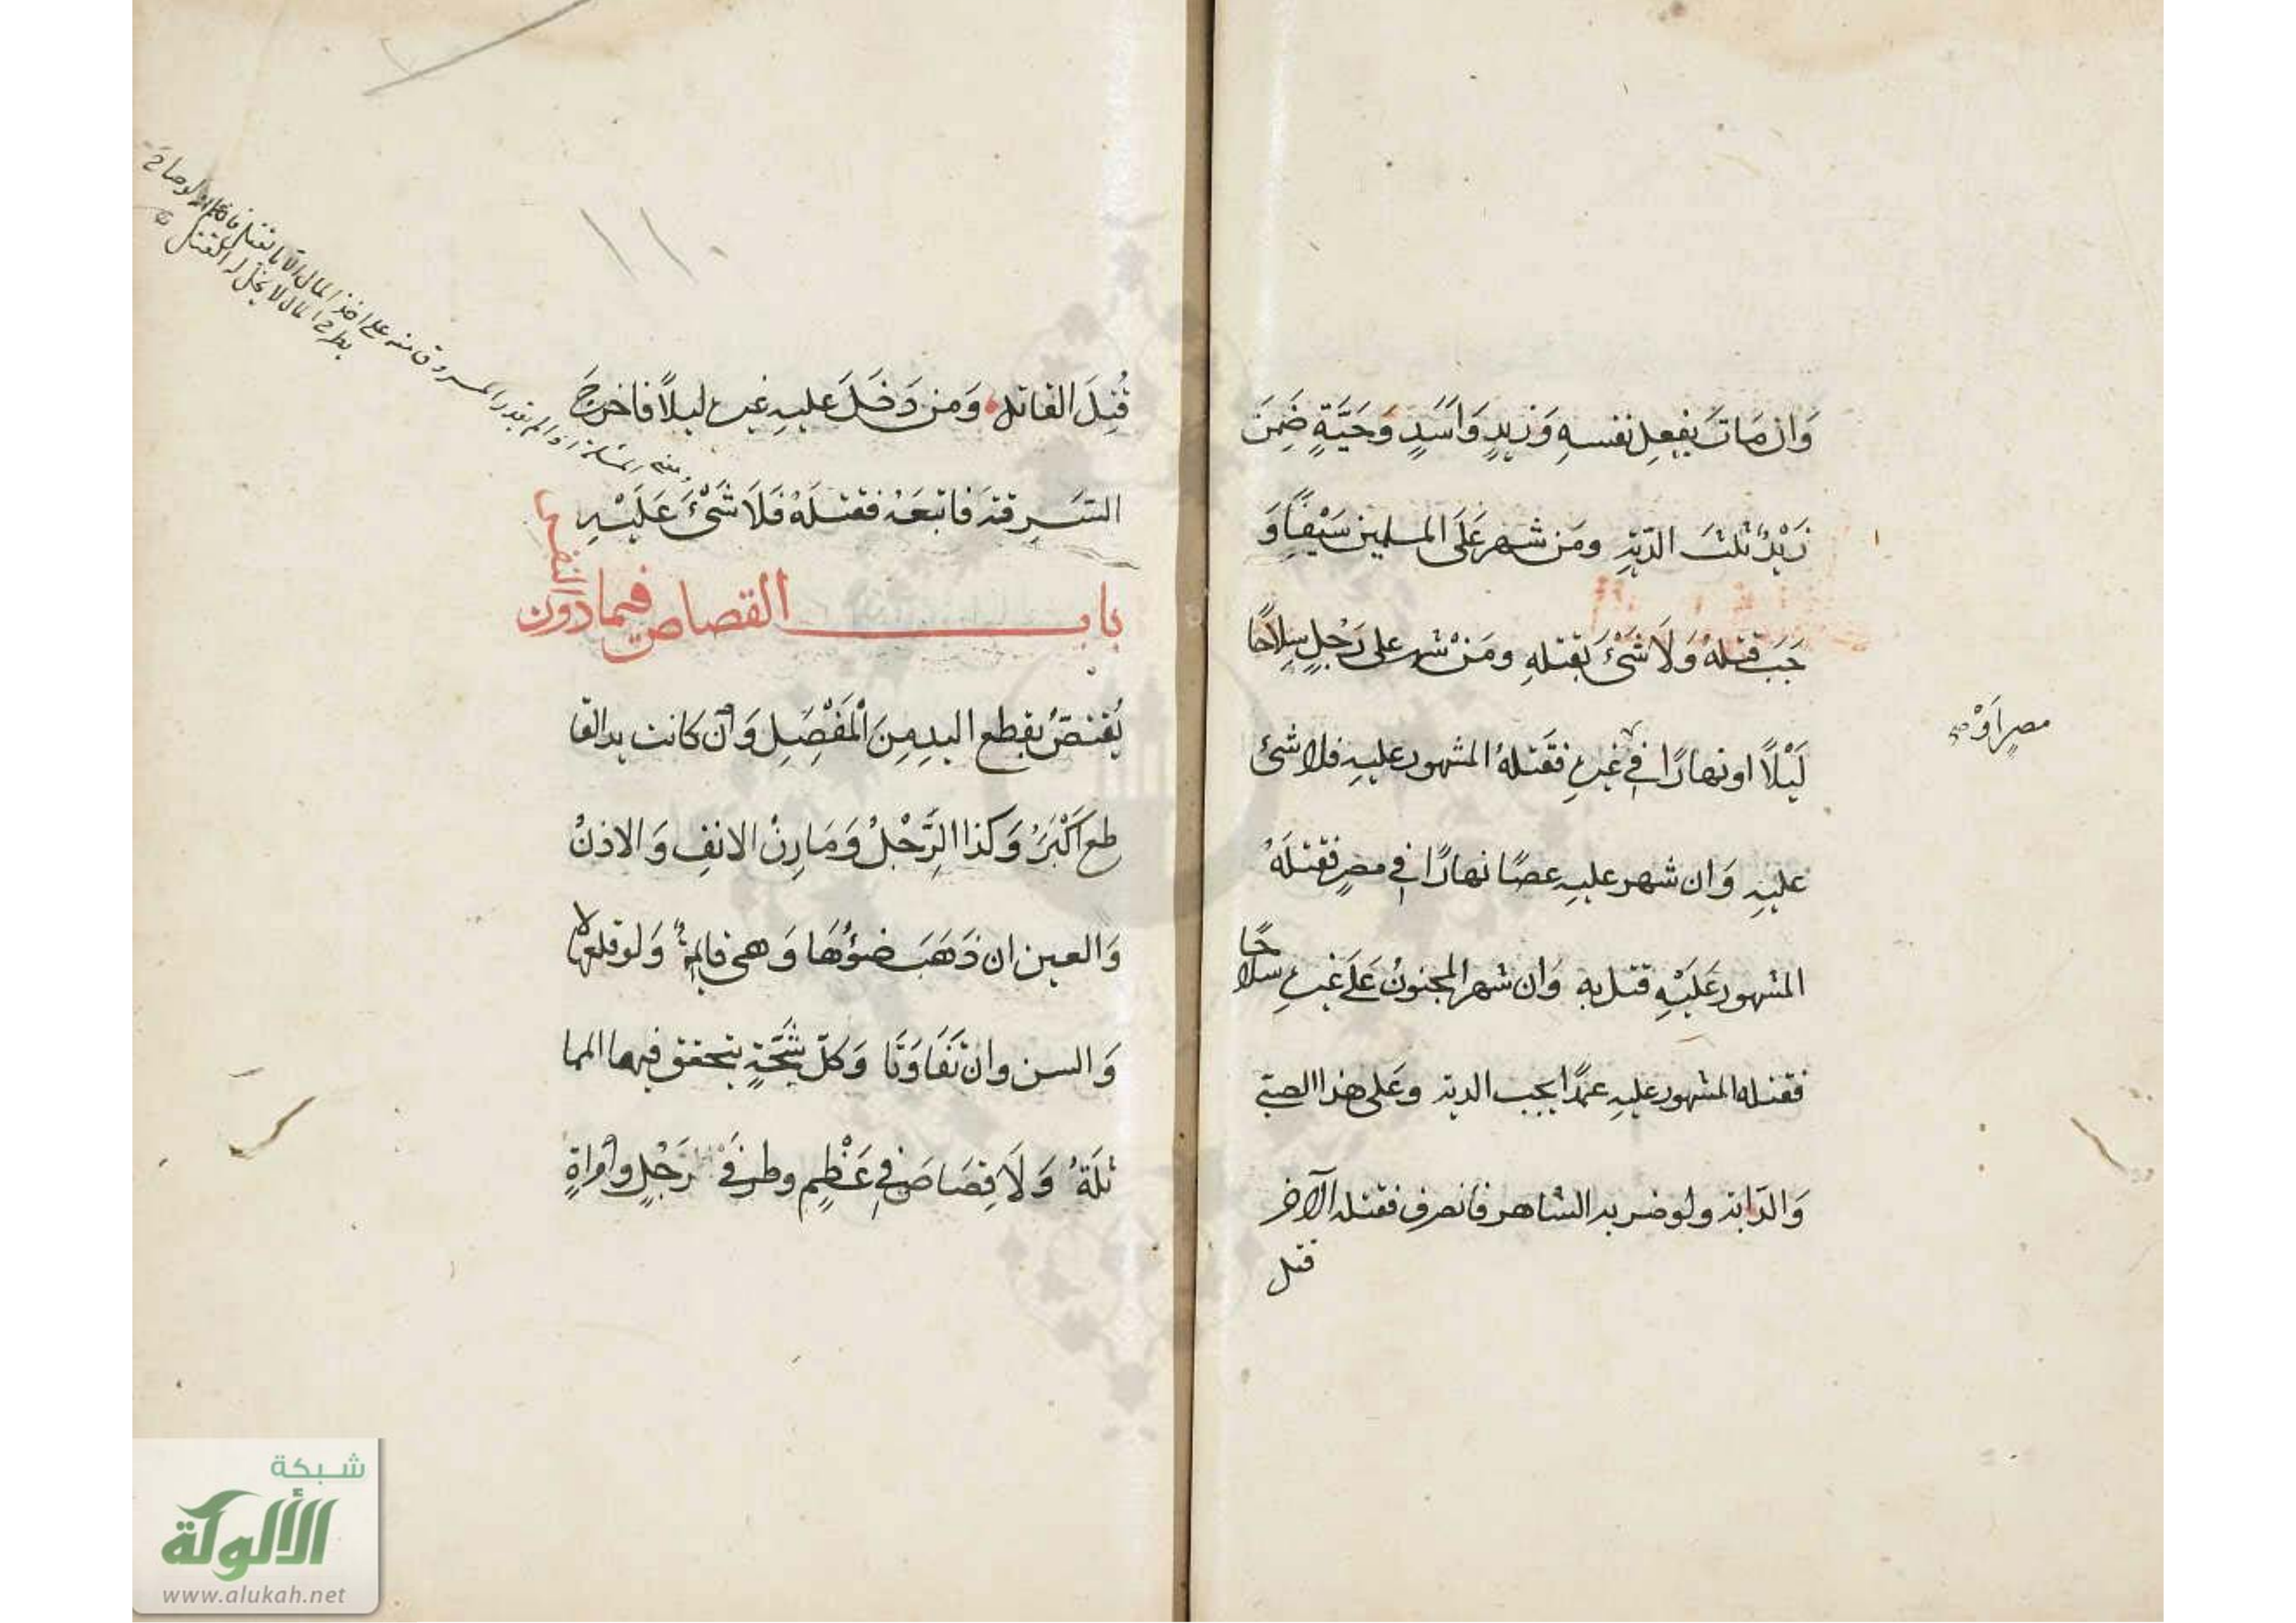 وَان مَاتَ بفِعِل نفسهِ وَزيدٍ وَاَسَدٍ وَحَيَّةٍ ضَمِنَ
زَيْدٌ ثلثَ الدّيةِ ومَن شهر عَلَى المسلمين سَيْفًا وَ
جَبَ قتلهُ وَلَا شَىْءَ بقتلهِ ومَنْ شهر على رَجُلٍ سِلاحًا
لَيْلًا او نهارًا في غيره فقَتَلهُ المشهور عليهِ فلا شئ
مصرٍ اَوْ صح
عليهِ وَان شهر عليهِ عصًا نهارًا في مصرٍ فقتلَهُ
المشهور عَلَيْهِ قتل بهِ وَان شهر المجنونُ عَلَى غيرهِ سلاحًا
فقتله المشهور عليهِ عمدًا يجب الدية وعَلى هذا الصبّى
وَالدّابة ولو ضربه الشاهر فانصرف فقتله الآخر
قتل
قُتِلَ القاتل وَمن دَخَلَ عليهِ غيره ليلًا فاخرجَ
السَّرِقةَ فَاتبَعَهُ فقتلَهُ فَلَا شَىْءَ عَلَيْهِ
باب القصاص فيما دون النفس
يُقتصُّ بقطع اليدِ مِنَ الْمَفْصِلِ وَاْن كَانت يد القا
طع اَكْبَرَ وَكذا الرِّجْلُ وَمَارِنُ الانفِ وَالاذنُ
وَالعين ان ذَهَبَ ضوؤُهَا وَهى قايمةٌ وَلو قلعها لا
وَالسن وان تَفَاوَتَا وَكلّ شَجَّةٍ يتحقق فيها المما
ثلَةُ وَلَا قِصَاصَ فِي عَظْمٍ وطرفَىْ رَجُلٍ واْمراةٍ
المسئلة اذا لم يقدر المسروق منه على اخذ المال الا با لقتل
بطرح المال لا يحلّ له القتل
شبكة
الألوكة
www.alukah.net